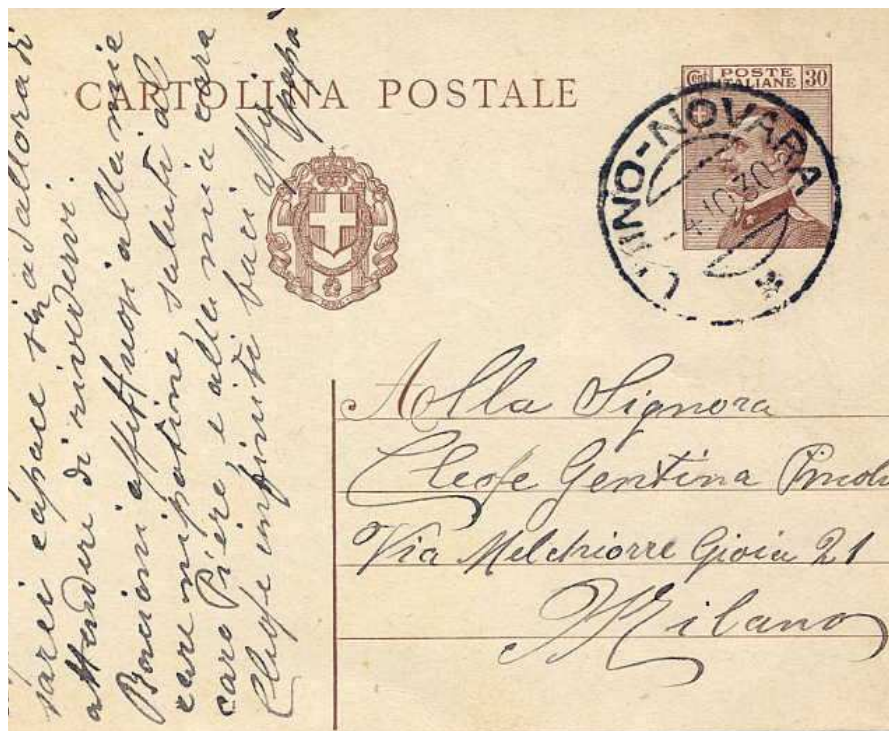 CARTOLINA POSTALE
POSTE
ITALIANE 30
LUINO-NOVARA
4.10.30
Alla Signora
Cleofe Gentina
Via Melchiorre Gioia 21
Milano
sarei capace sin d'allora di
attendere di rivedervi.
Bacioni affettuosi alle mie
care nipotine, saluti al
caro Piere, e alla mia cara
Cleofe infiniti baci aff
papà